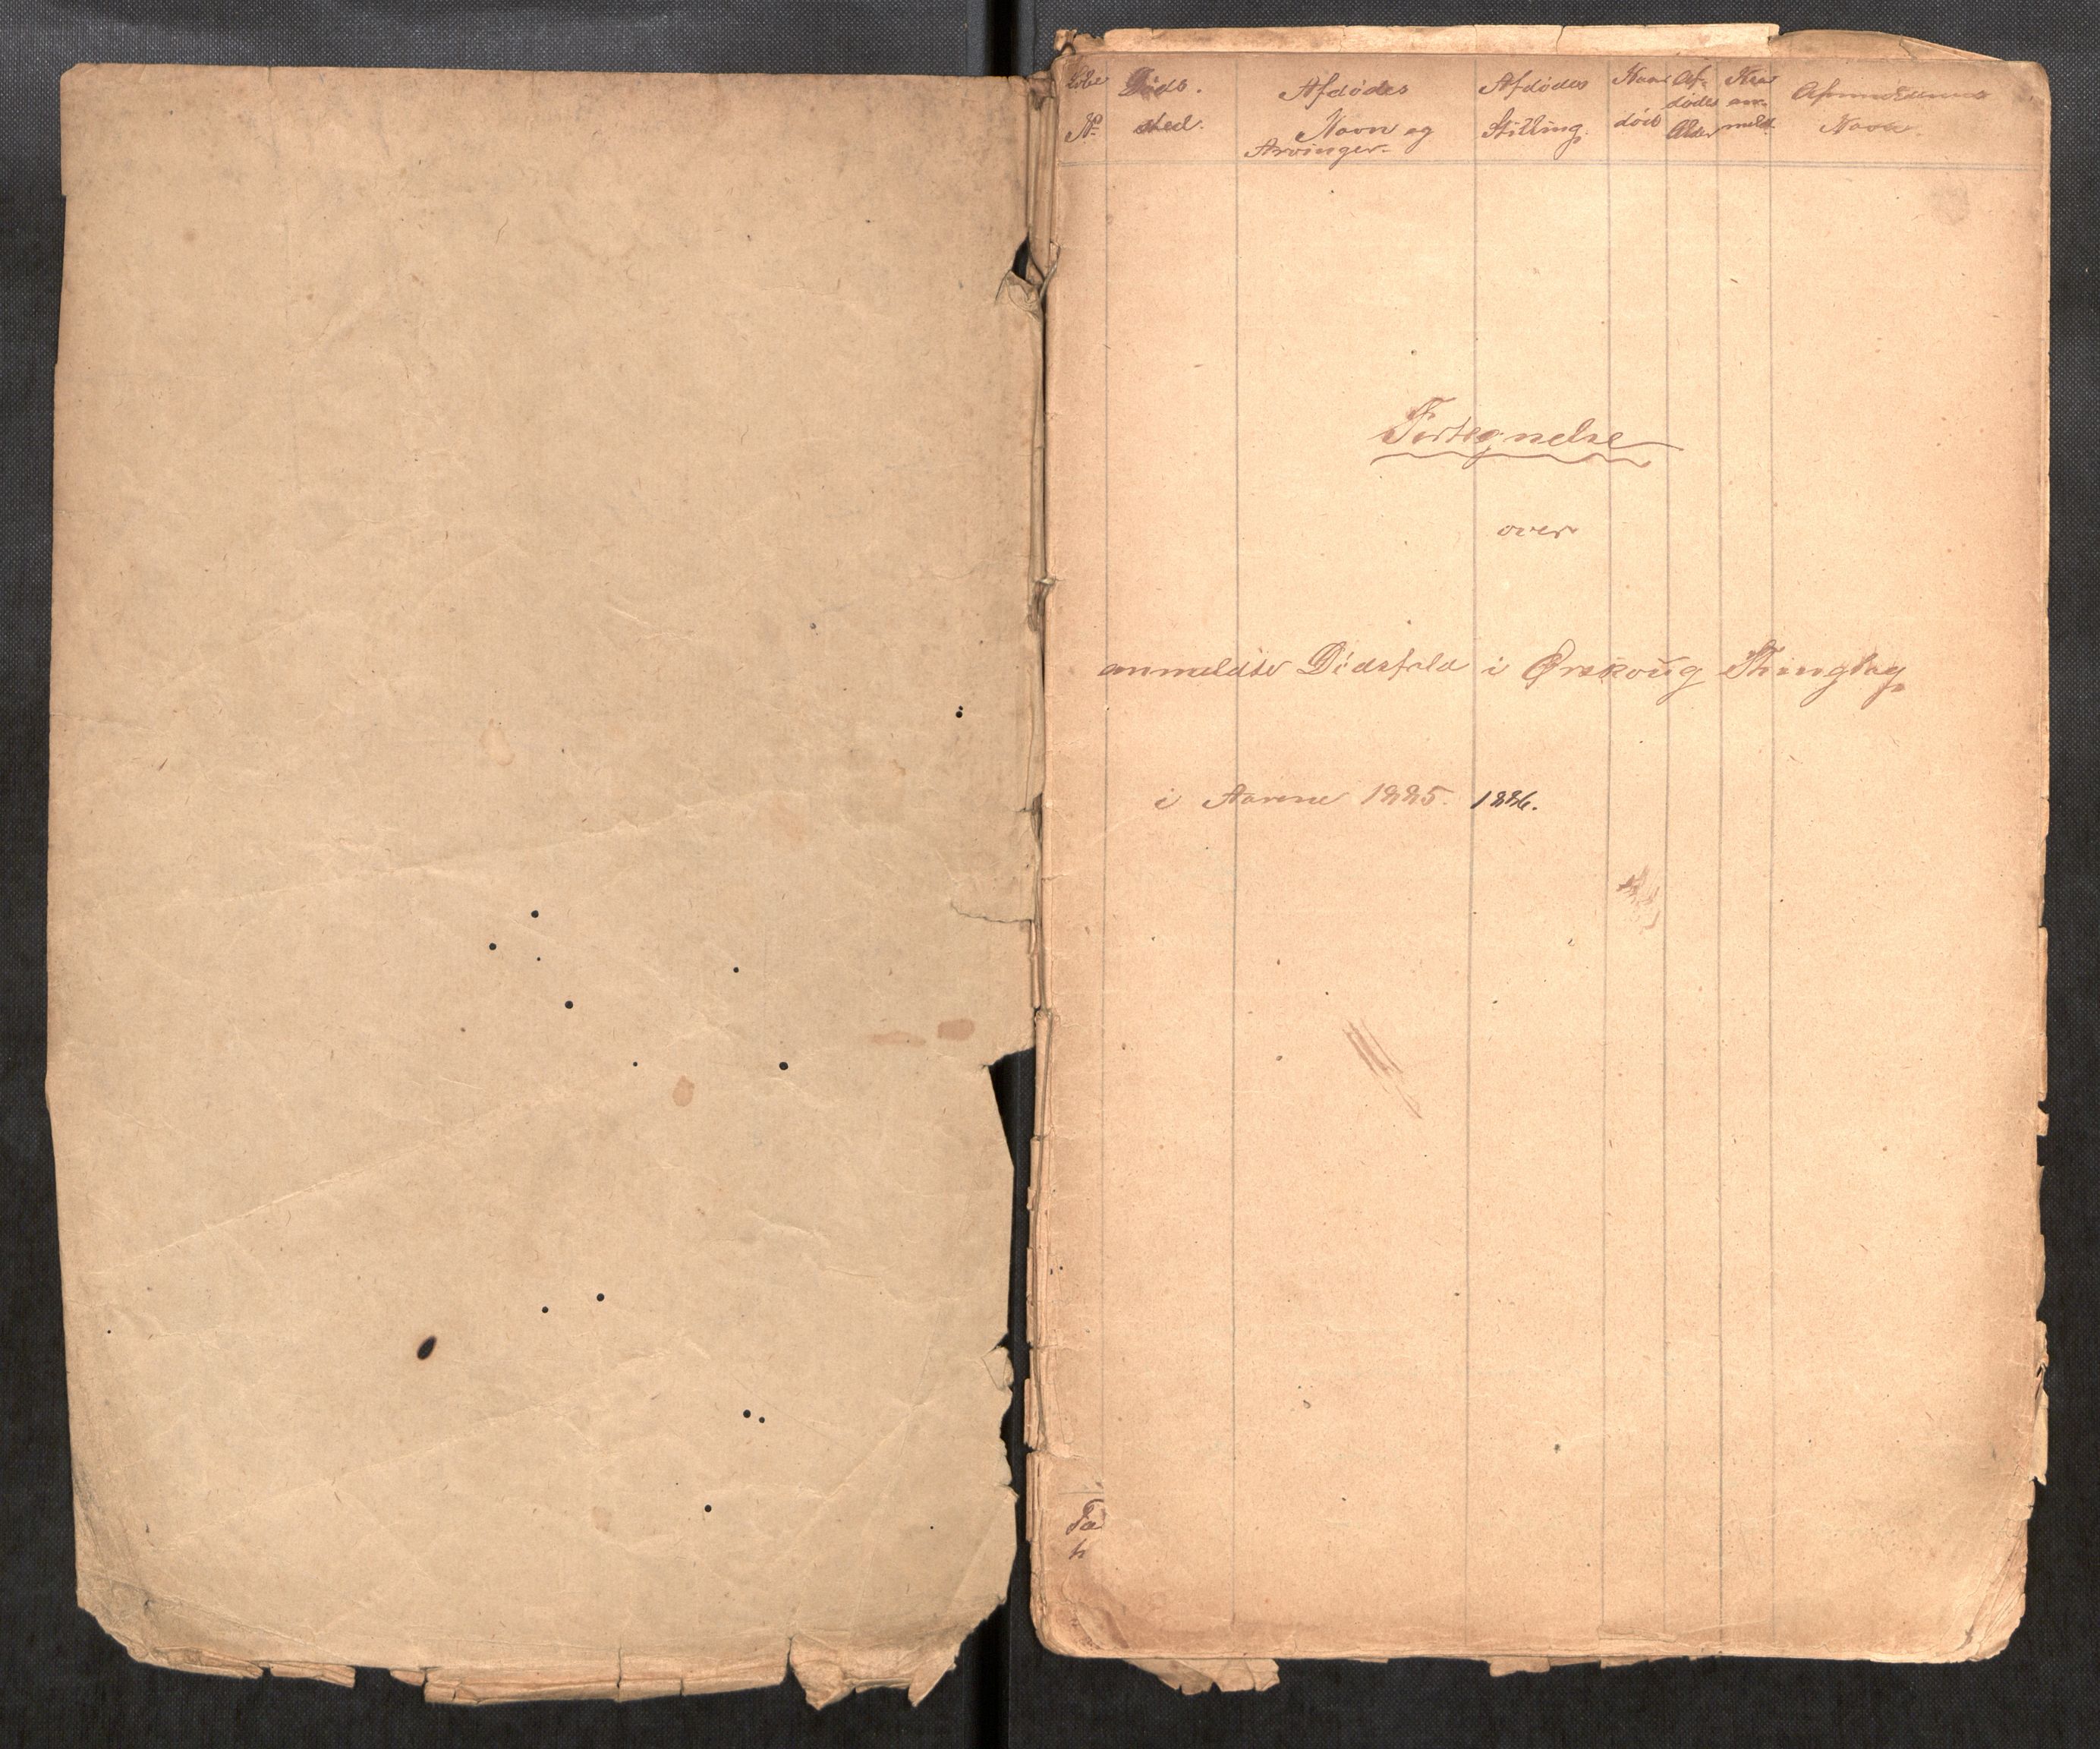 Løbe
No
Døds.
sted.
Afdødes
Navn og
Arvinger.
Afdødes
Stilling.
Naar
død
Af-
dødes
Alder
Naar
an-
meldt.
Navn.
Fortegnelse
over
anmeldte Dødsfald i Ørskoug Thinglag
i Aarene 1885. 1886.
Ta
h